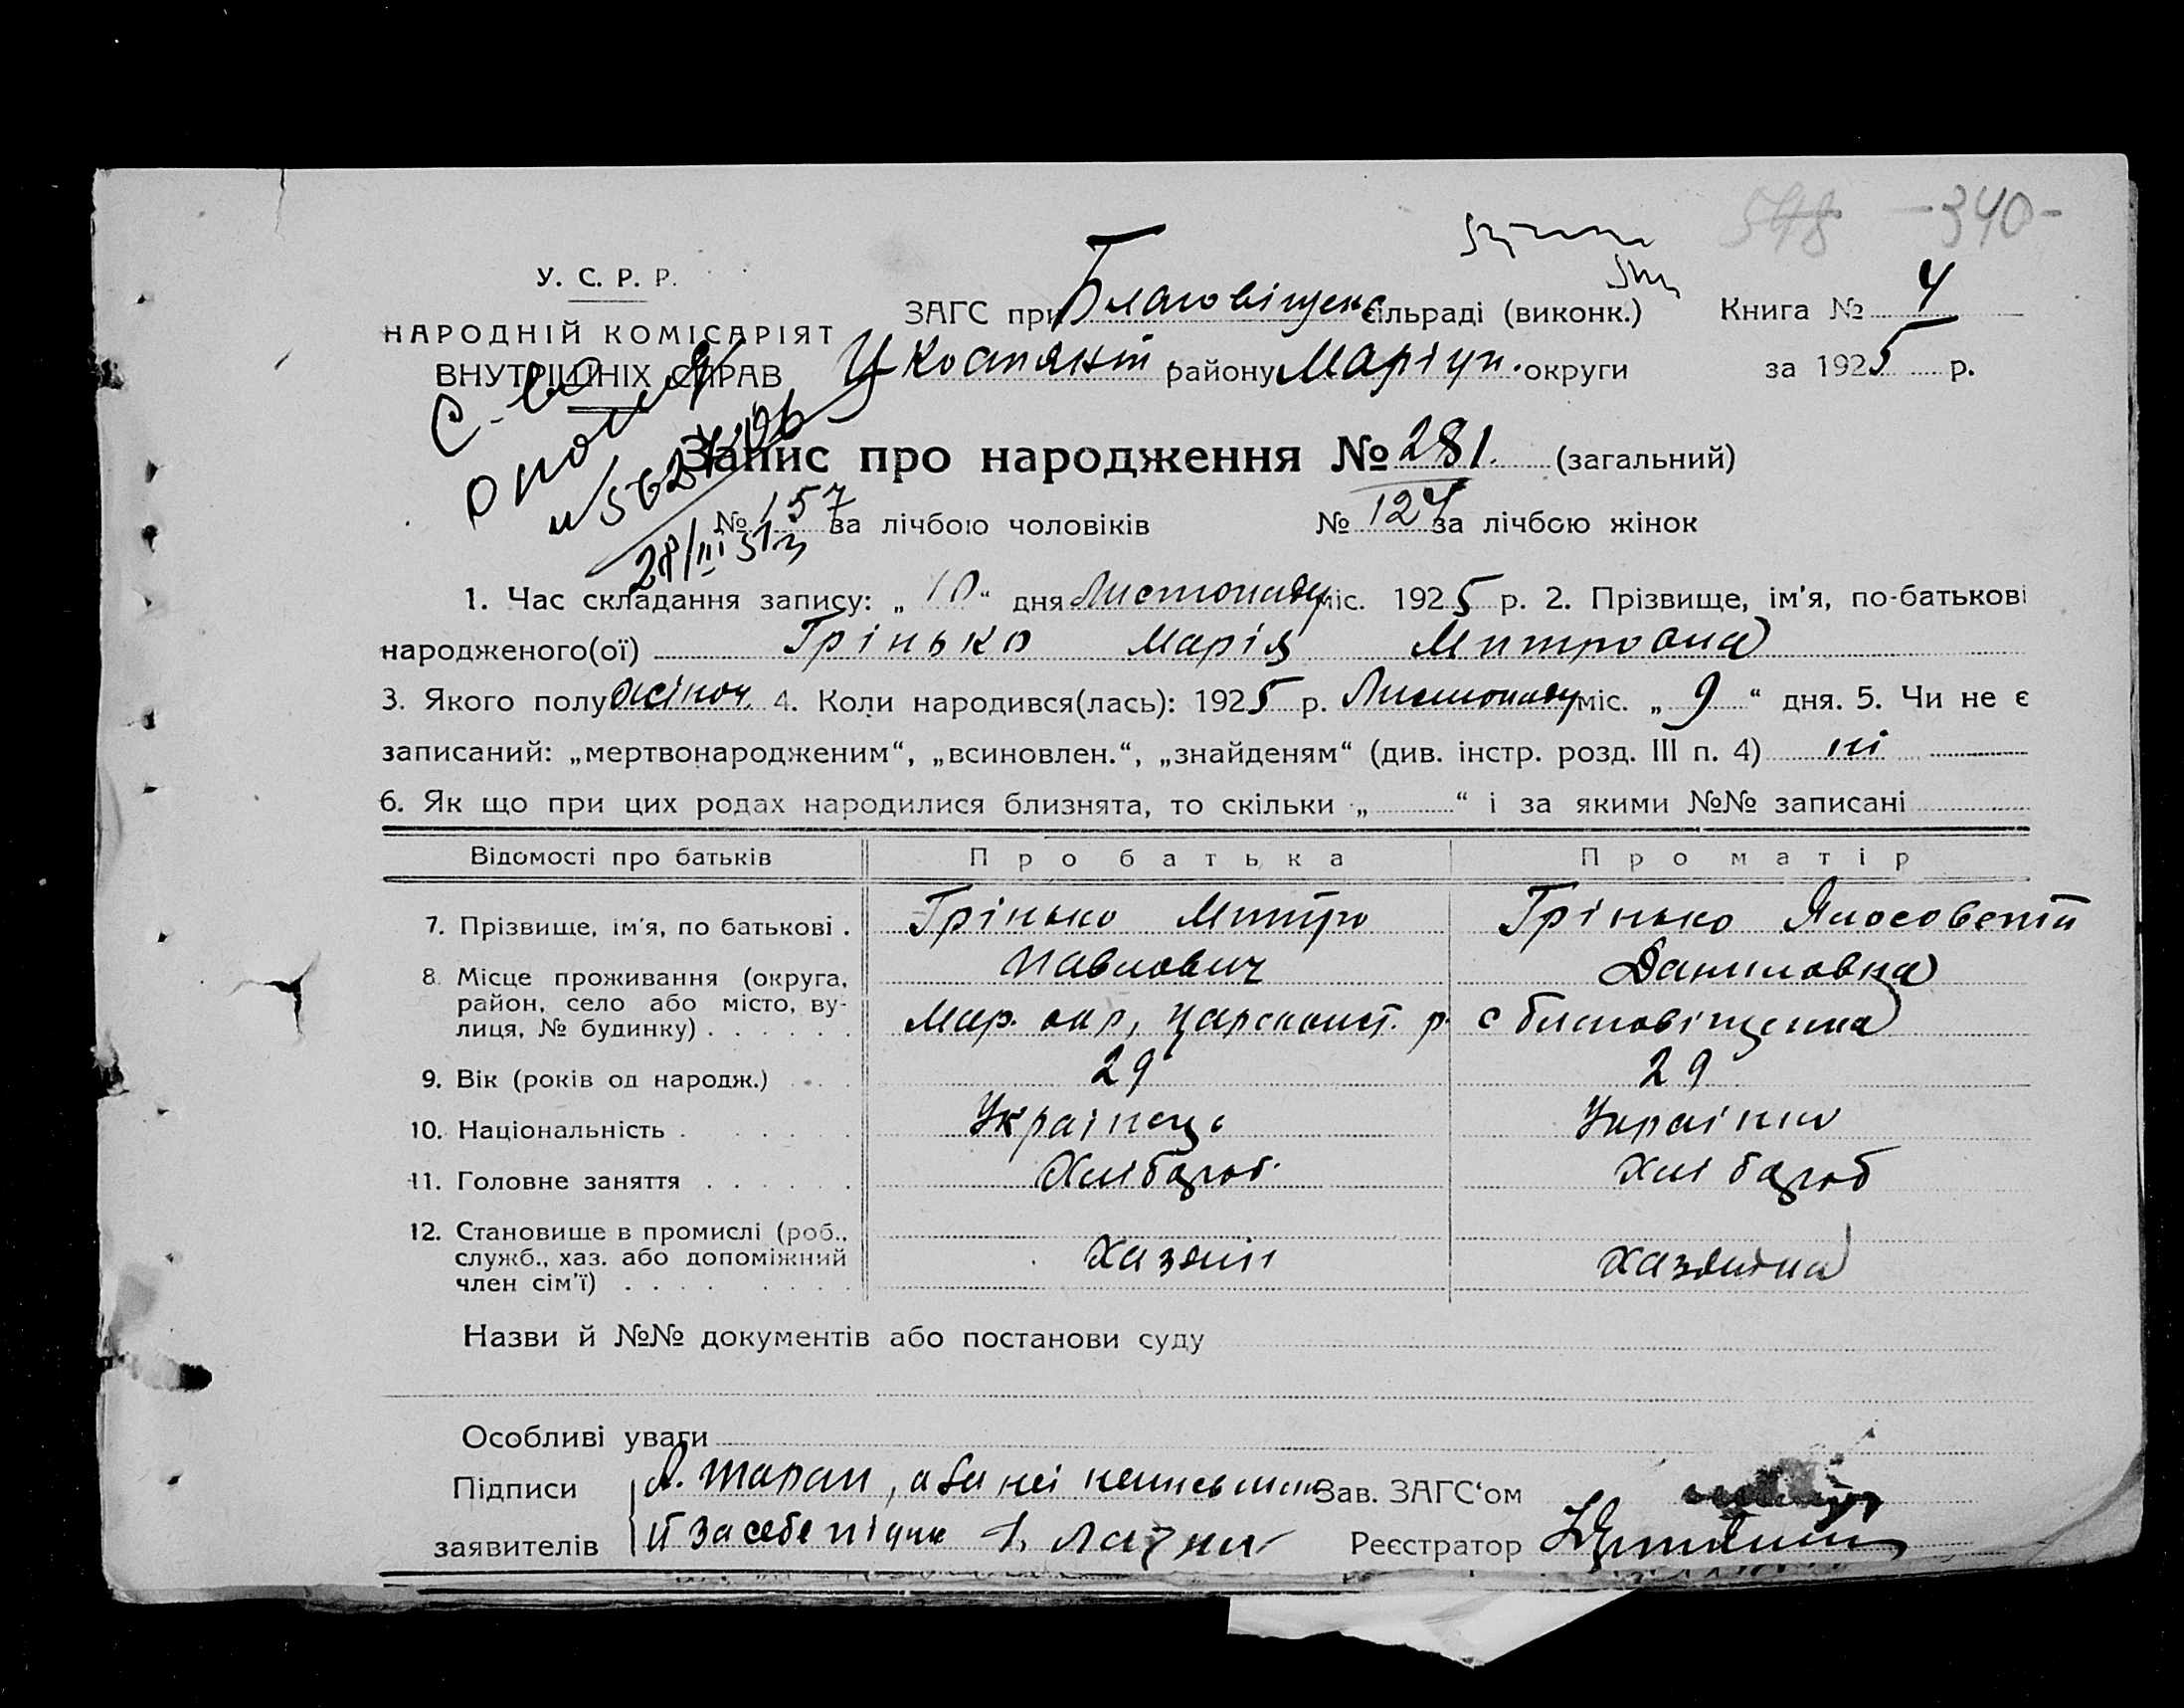 548 -340-
У. С. Р. Р.
НАРОДНІЙ КОМІСАРІЯТ
ВНУТРІШНІХ СПРАВ
ЗАГС при Благовіщенс сільраді (виконк.) Книга № 4
ЦКостянт району Маріуп. округи за 1925 р.
Запис про народження № 281. (загальний)
№ 157 за лічбою чоловіків № 124 за лічбою жінок
28/III 51
1. Час складання запису: „10“ дня Листопаду міс. 1925 р. 2. Прізвище, ім'я, по-батькові
народженого(ої) Грінько Марія Митровна
3. Якого полу жіноч. 4. Коли народився(лась): 1925 р. Листопаду міс. „9“ дня. 5. Чи не є
записаний: „мертвонародженим“, „всиновлен.“, „знайденям“ (див. інстр. розд. III п. 4) ні
6. Як що при цих родах народилися близнята, то скільки „ “ і за якими №№ записані
Відомості про батьків Про батька Про матір
7. Прізвище, ім'я, по батькові . Грінько Митро Грінько
Павлович Даниловна
8. Місце проживання (округа,
район, село або місто, ву-
лиця, № будинку) . . . . . . Мар. окр, Царсконст. р. с Благовіщенка
9. Вік (років од народж.) . . . 29 29
10. Національність . . . . . . Українець Українка
11. Головне заняття . . . . . . Хлібороб. Хлібороб
12. Становище в промислі (роб.,
служб., хаз. або допоміжний
член сім'ї) . . . . . . . . Хазяїн Хазяйка
Назви й №№ документів або постанови суду
Особливі уваги
Підписи Зав. ЗАГС‘ом
заявителів й за себе Реєстратор